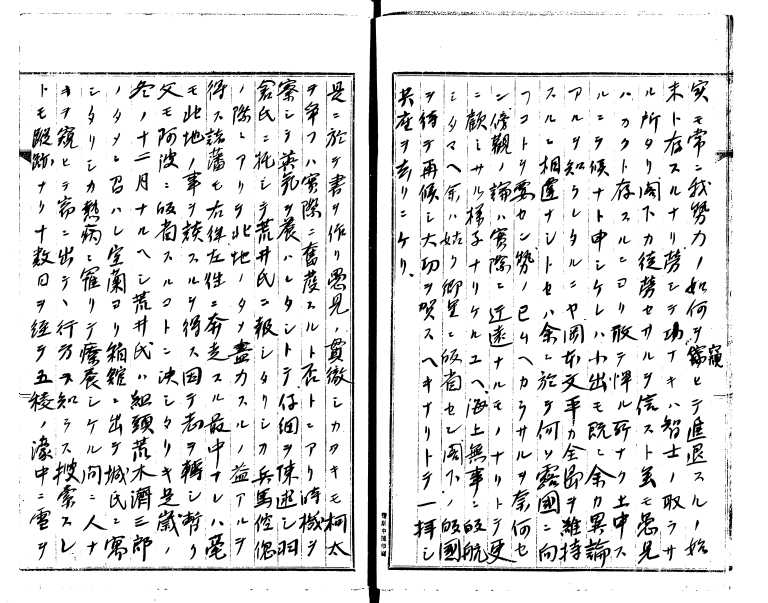 実モ常ニ我勢力ノ如何ヲ窺ヒテ進退スルノ始
末ト存スルナリ労シテ功ナキハ智士ノ取ラサ
ル所タリ閣下カ徒労セサルヲ信スト雖モ愚見
ハカクト存スルニヨリ敢テ憚ル所ナク上申ス
ルニテ候ナト申シケレハ小出モ既ニ余カ異論
アルヲ知ラレタルニヤ岡本文平カ全島ヲ維持
スルト相違ナシトセハ余ニ於テ何ソ露国ニ向
フコトヲ要セン勢ノ已ムヘカラサルヲ奈何セ
ン傍観ノ論ハ実際ニ迂遠ナルモノナリトテ更
ニ顧ミサル様子ナリケルユヘ海上無事ニ帰航
シタマヘ余ハ姑ク郷里ニ帰省セン閣下ノ帰国
ヲ待テ再候シ大功ヲ賀スヘキナリトテ一拝シ
其座ヲ去リニケリ
是ニ於テ書ヲ作リ愚見ノ貫徹シカタキモ柯太
ヲ争フハ実際ニ奮発スルト否トニアリ時機ヲ
察シテ英気ヲ養ハレタシトテ仔細ヲ陳述シ羽
倉氏ニ托シテ荒井氏ニ報シタリシカ兵馬倥偬
ノ際ニアリテ此地ノタメ盡力スルノ益アルヲ
得ス諸藩モ右往左往ニ奔走スル最中ナレハ毫
モ此地ノ事ヲ談スルヲ得ス因テ志ヲ転シ暫ク
父モ阿波ニ帰省スルコトニ決シタリキ是歳ノ
冬ノ十二月ナルヘシ荒井氏ハ組頭荒木濟三郎
ノタメニ召ハレ室蘭ヨリ箱館ニ出テ城氏ニ寓
シタリシカ熱病ニ罹リテ療養シケル間ニ人ナ
キヲ窺ヒテ窃ニ出テヽ行方ヲ知ラス捜索スレ
トモ蹤跡ナリ十数日ヲ経テ五稜ノ濠中ニ雪ヲ